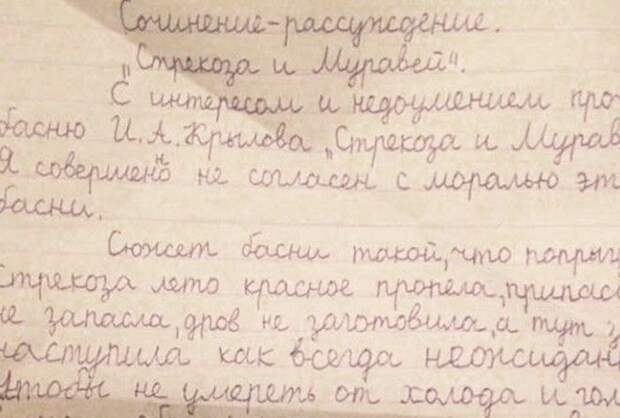 Сочинение-рассуждение.
„Стрекоза и Муравей".
С интересом и недоумением про
басню И.А.Крылова „Стрекоза и Мурав
Я совершенно не согласен с моралью эт
басни.
Сюжет басни такой, что попрыг
Стрекоза лето красное пропела, припас
не запасла, дров не заготовила, а тут з
наступила как всегда неожидан
Чтобы не умереть от холода и гол